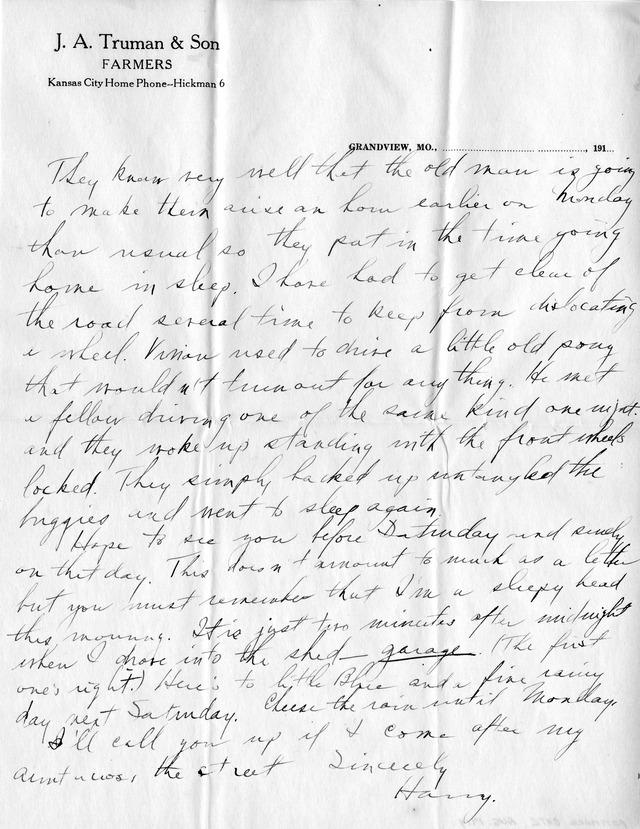 J. A. Truman & Son
FARMERS
Kansas City Home Phone--Hickman 6
GRANDVIEW, MO., ........................................, 191...
They know very well that the old man is going
to make them arise an hour earlier on Monday
than usual so they put in the time going
home in sleep. I have had to get clear of
the road several time to keep from dislocating
a wheel. Vivian used to drive a little old pony
that wouldn't turn out for any thing. He met
a fellow driving one of the same kind one night.
and they woke up standing with the front wheels
locked. They simply backed up untangled the
buggies and went to sleep again.
Hope to see you before Saturday and surely
on that day. This doesn't amount to much as a letter
but you must remember that I'm a sleepy head
this morning. It is just two minutes after midnight
when I drove into the shed - garage. (The first
one's right.) Here's to little Blue and a fine rainy
day next Saturday. Cheese the rain until Monday.
I'll call you up if I come after my
aunt across the street Sincerely
Harry.